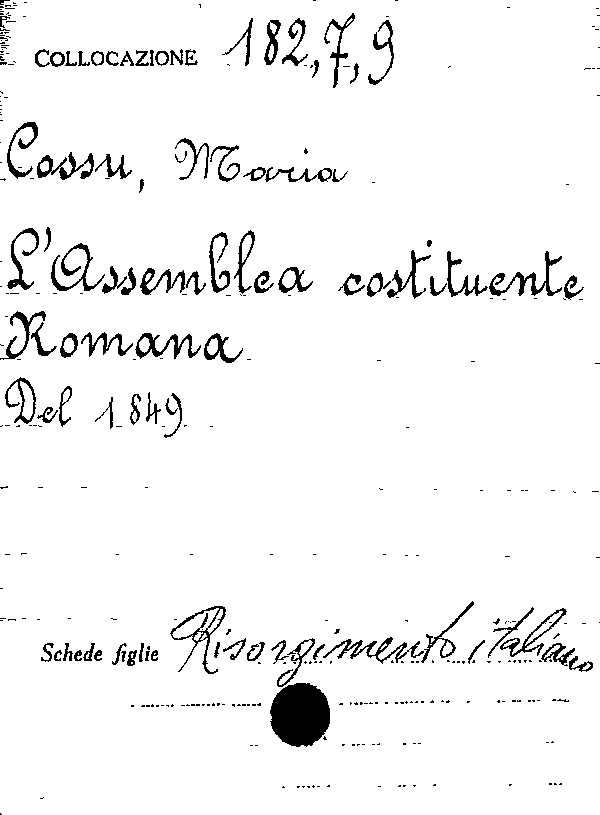 COLLOCAZIONE 182,7,9
Cossu, Maria
L'Assemblea costituente
Romana
Del 1849
Schede figlie Risorgimento italiano